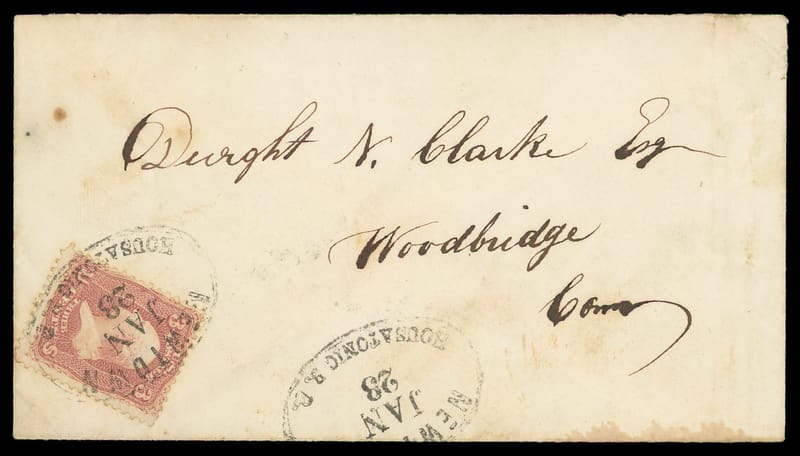 Dwight N. Clarke Esq
Woodbridge
Conn
HOUSATONIC
NEWTOWN
JAN
23
HOUSATONIC R. R.
NEWT
JAN
23